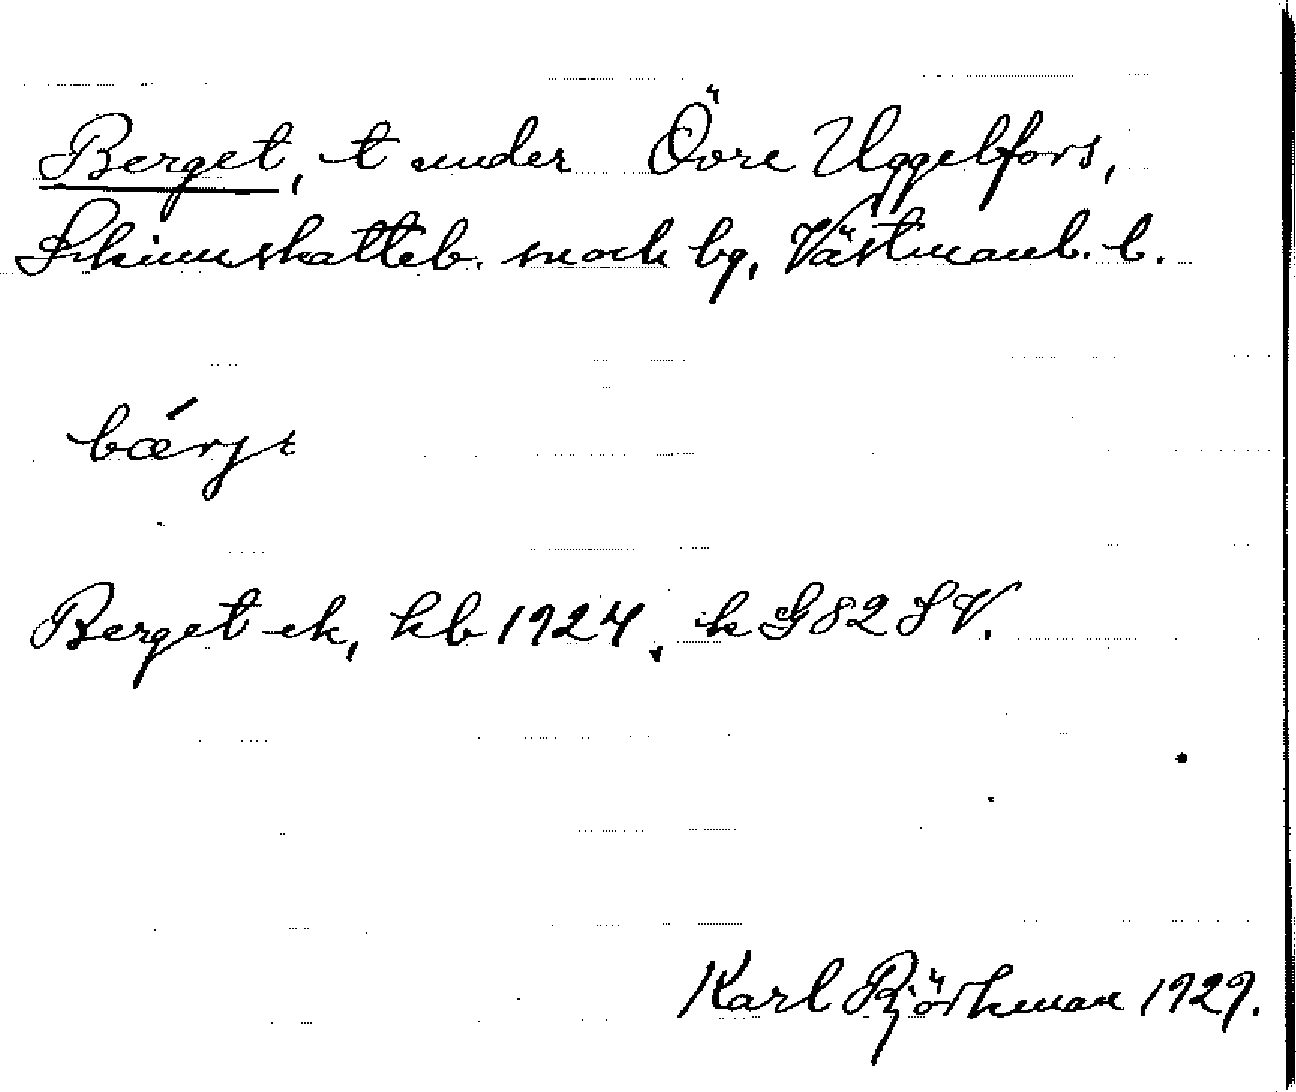 Berget, t under Övre Uggelfors,
Skinnskatteb. sock bg, Västmanl. l.
bærjt
Berget ek, kb 1924, k G82 SV.
Karl Björkman 1929.